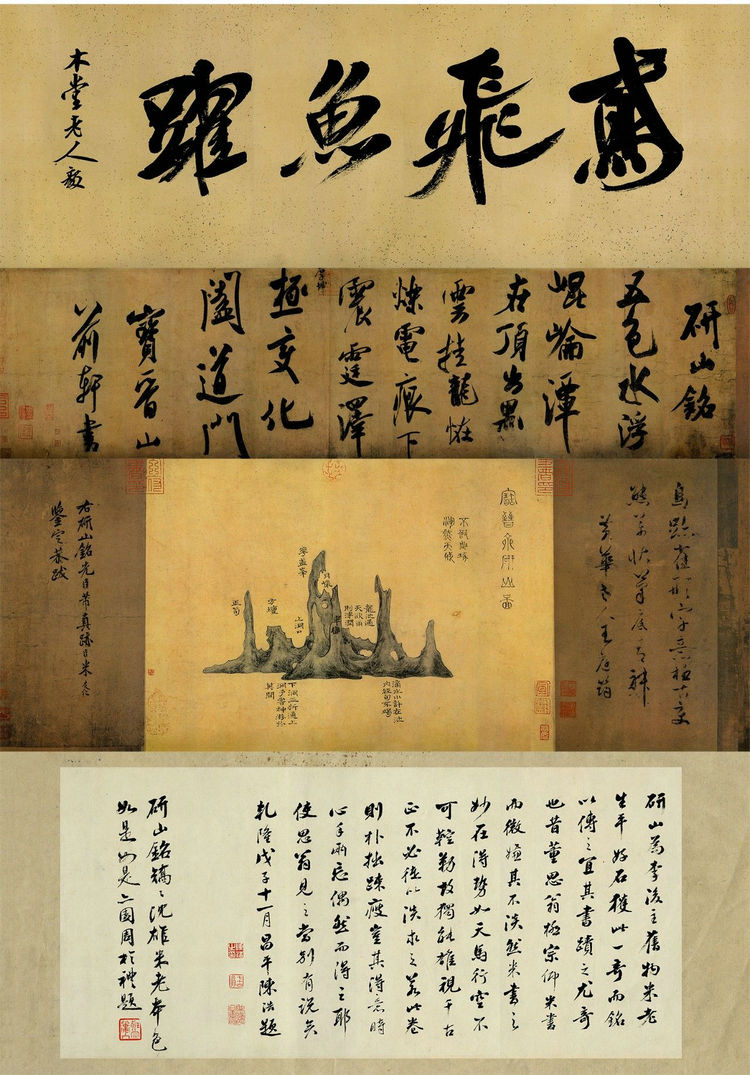 鳶飛魚躍
木堂老人毅
研山銘
五色水浮
崐崘潭
在頂出黑
雲挂龍恠
爍電痕下
震霆澤
極變化
闔道門
寶晉山
前軒書
鳥跡雀形字意極古變
態萬狀筆底有神
黃華老人王庭筠
寶晉齋研山圖
不假雕琢
渾然天成
龍池遇
天欲雨
則津潤
華蓋峯
月巖
上洞口
方壇
玉筍
滴水小許在池
內經旬不竭
下洞三折通上
洞予嘗神游於
其間
右研山銘先臣芾真蹟臣米友仁
鑒定恭跋
研山為李後主舊物米老
生平好石獲此一奇而銘
以傳之宜其書蹟之尤奇
也昔董思翁極宗仰米書
而微嫌其不淡然米書之
妙在得勢如天馬行空不
可鞚勒故獨能雄視千古
正不必徒以淡求之若此卷
則朴拙疎瘦豈其得意時
心手兩忘偶然而得之耶
使思翁見之當別有說矣
乾隆戊子十一月昌平陳浩題
研山銘矯矯沈雄米老本色
如是如是二園周於禮題